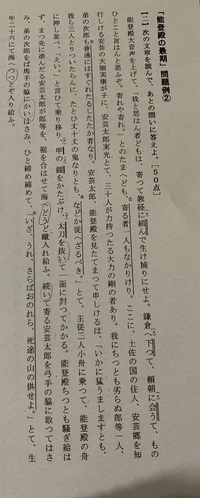 「能登殿の最期」問題例②
【二】次の文章を読んで、あとの問い答えよ。［５０点］
能登殿大音声を上げて、「我と思はん者どもは、寄つて教経に組んで生け捕りにせよ。鎌倉へ下つて、頼朝に会うて、もの
ひとこと言はんと思ふぞ。寄れや寄れ。」とのたまへども、寄る者一人もなかりけり。ここに、土佐の国の住人、安芸郷を知
行しける安芸の大領実康が子に、安芸太郎実光とて、三十人が力持つたる大力の剛の者あり。我にちつとも劣らぬ郎等一人、
弟の次郎も普通にはすぐれたるしたたか者なり。安芸太郎、能登殿を見たてまつて申しけるは、「いかに猛うましますとも、
我ら三人取りついたらんに、たとひ丈十丈の鬼なりとも、などか従へざるべき。」とて、主従三人小舟に乗つて、能登殿の舟
に押し並べ、「えい。」と言ひて乗り移り、甲の錣をかたぶけ、太刀を抜いて一面に討つてかかる。能登殿ちつとも騒ぎ給は
ず、まつ先に進んだる安芸太郎が郎等を、裾を合はせて海へどうど蹴入れ給ふ。続いて寄る安芸太郎を弓手の脇に取つてはさ
み、弟の次郎をば馬手の脇にかいばさみ、ひと締め締めて、「いざ、うれ、さらばおのれら、死途の山の供せよ。」とて、生
年二十六にて海へつつとぞ入り給ふ。